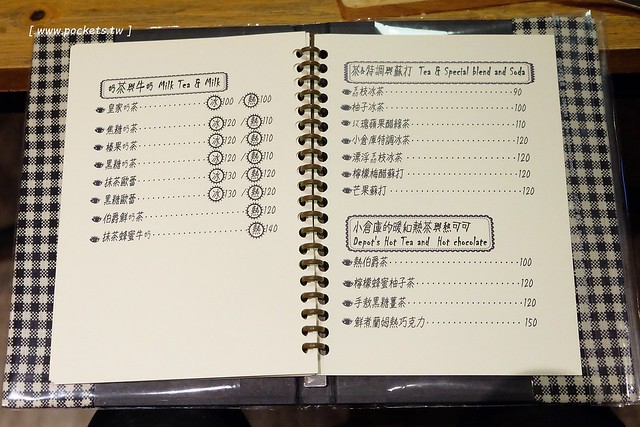 [ www.pockets.tw ]
奶茶與牛奶 Milk Tea & Milk
皇家奶茶 冰100 / 熱100
焦糖奶茶 冰120 / 熱110
榛果奶茶 冰120 / 熱110
黑糖奶茶 冰120 / 熱110
抹茶歐蕾 冰130 / 熱120
黑糖歐蕾 冰130 / 熱120
伯爵鮮奶茶 熱120
抹茶蜂蜜牛奶 熱140
茶&特調與蘇打 Tea & Special blend and Soda
荔枝冰茶 90
柚子冰茶 100
玫瑰蘋果醋綠茶 110
小倉庫特調冰茶 120
漂浮荔枝冰茶 120
檸檬梅醋蘇打 120
芒果蘇打 120
小倉庫的暖和熱茶與熱可可
Depot's Hot Tea and Hot chocolate
熱伯爵茶 100
檸檬蜂蜜柚子茶 120
手熬黑糖薑茶 120
鮮煮蘭姆熱巧克力 150